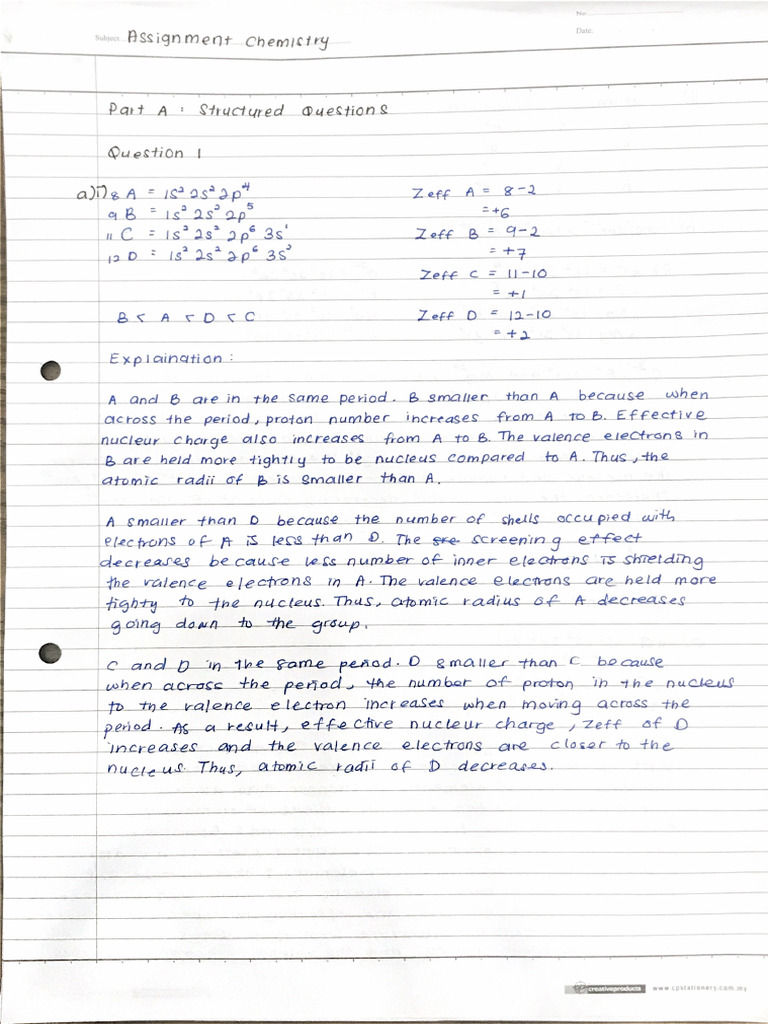 No:
Subject: Assignment Chemistry
Date:
Part A : Structured Questions
Question 1
a)i) 8 A = 1s² 2s² 2p⁴ Zeff A = 8-2
= +6
9 B = 1s² 2s² 2p⁵ Zeff B = 9-2
= +7
11 C = 1s² 2s² 2p⁶ 3s¹ Zeff C = 11-10
= +1
12 D = 1s² 2s² 2p⁶ 3s² Zeff D = 12-10
= +2
B < A < D < C
Explaination :
A and B are in the same period. B smaller than A because when
across the period, proton number increases from A to B. Effective
nucleur charge also increases from A to B. The valence electrons in
B are held more tightly to be nucleus compared to A. Thus, the
atomic radii of B is smaller than A.
A smaller than D because the number of shells occupied with
electrons of A is less than D. The screening effect
decreases because less number of inner electrons is shielding
the valence electrons in A. The valence electrons are held more
tighty to the nucleus. Thus, atomic radius of A decreases
going down to the group.
C and D in the same period. D smaller than C because
when across the period, the number of proton in the nucleus
to the valence electron increases when moving across the
period. As a result, effective nucleur charge, Zeff of D
increases and the valence electrons are closer to the
nucleus. Thus, atomic radii of D decreases.
creativeproducts www.cpstationery.com.my